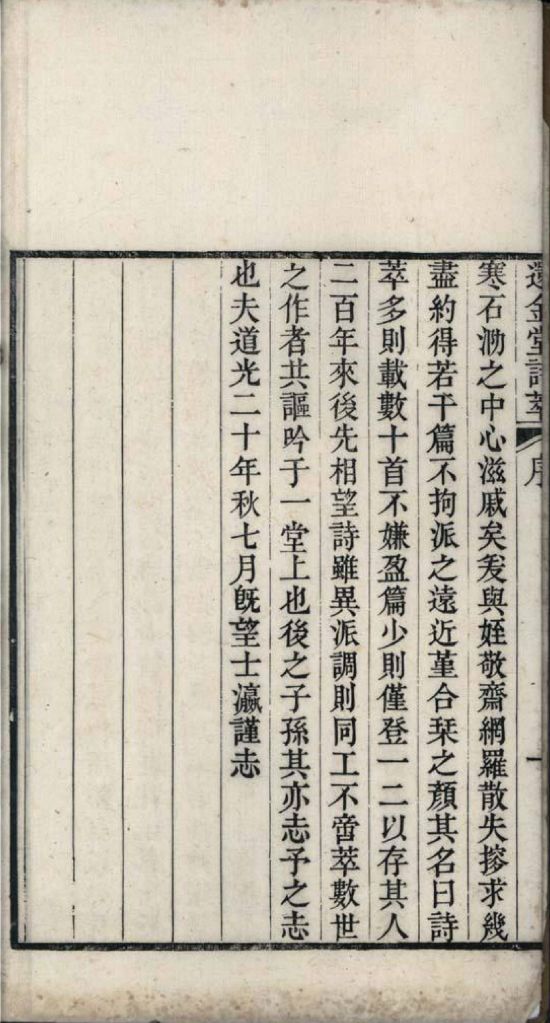 還金堂詩萃 序 一
寒石泐之中心滋戚矣爰與姪敬齋網羅散失搜求幾
盡約得若干篇不拘派之遠近堇合栞之顏其名曰詩
萃多則載數十首不嫌盈篇少則僅登一二以存其人
二百年來後先相望詩雖異派調則同工不啻萃數世
之作者共謳吟于一堂上也後之子孫其亦志予之志
也夫道光二十年秋七月旣望士瀛謹志